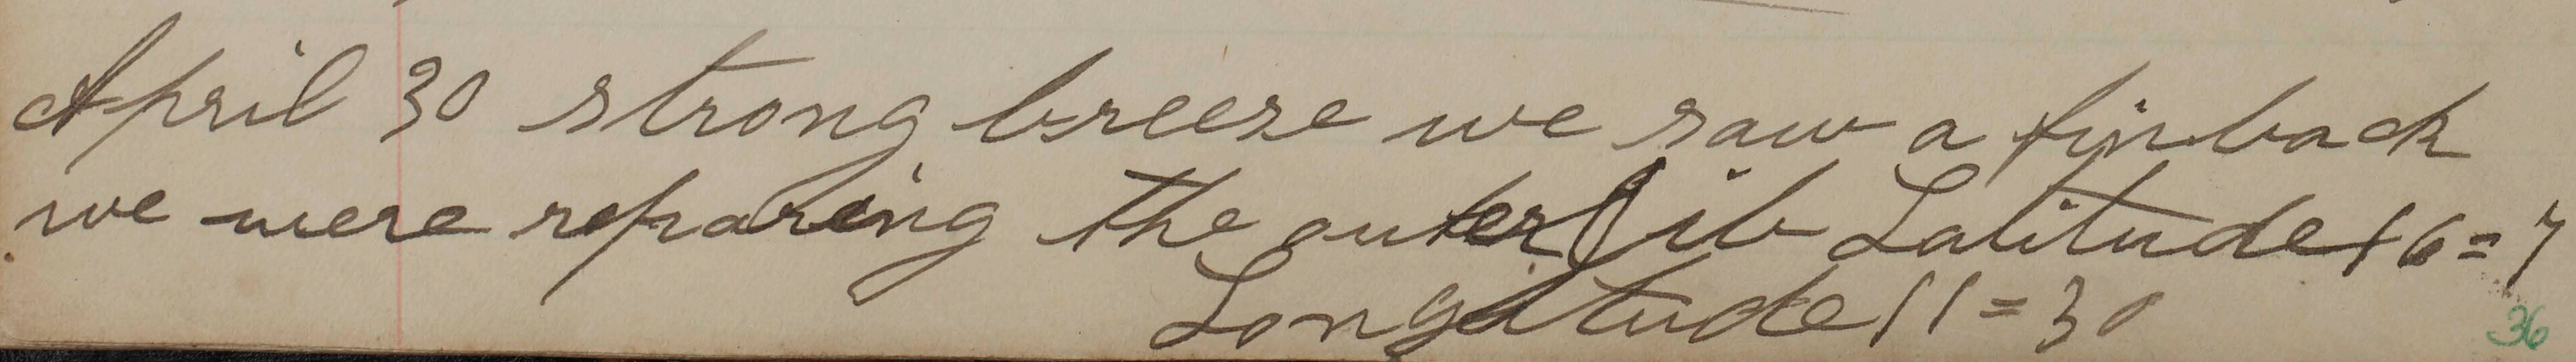 April 30 strong breeze we saw a finback
we were reparing the outer Jib Latitude 16=7
Longitude 11=30
36